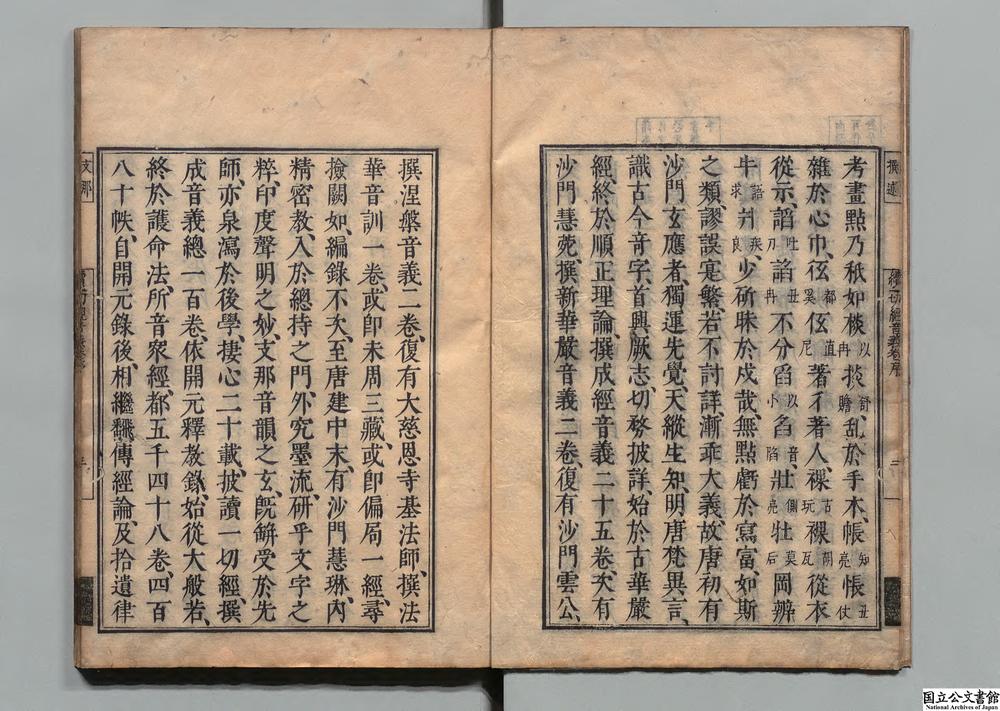 撰述
續一切經音義卷序
三
考畫點乃秖如棪以冉掞舒贍、亂於手木、帳知亮悵丑仗
雜於心巾、彽都奚低直尼著彳著人、裸古玩裸胡瓦從衣
從示、謟吐刀諂丑冉不分舀以小臽音陷、壯側亮牡莫后罔辨
牛語求爿疾良、少斫昧於戍哉、無點虧於寫富、如斯
之類、謬誤寔繁、若不討詳、漸乖大義、故唐初有
沙門玄應者、獨運先覺、天縱生知、明唐梵異言、
識古今音字、首興厥志、切務披詳、始於古華嚴
經、終於順正理論、撰成經音義二十五卷、次有
沙門慧苑、撰新華嚴音義二卷、復有沙門雲公、
撰涅槃音義二卷、復有大慈恩寺基法師、撰法
華音訓一卷、或卽未周三藏、或卽偏局一經、尋
撿闕如、編錄不次、至唐建中末、有沙門慧琳、內
精密教、入於總持之門、外究墨流、研乎文字之
粹、印度聲明之妙、支那音韻之玄、旣缾受於先
師、亦泉瀉於後學、棲心二十載、披讀一切經、撰
成音義總一百卷、依開元釋教錄、始從大般若、
終於護命法、所音衆經、都五千四十八卷、四百
八十帙、自開元錄後、相繼飜傳經論、及拾遺律
支那
国立公文書館
National Archives of Japan